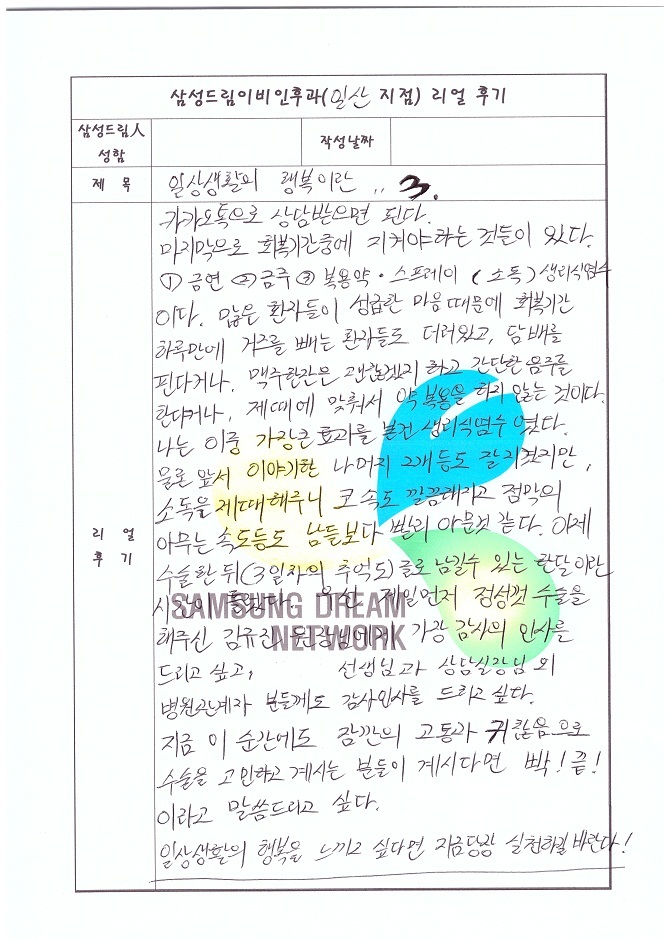 삼성드림이비인후과(일산 지점) 리얼 후기
삼성드림人
성함
작성날짜
제 목
일상생활의 행복이란 .. 3.
카카오톡으로 상담받으면 된다.
마지막으로 회복기간중에 지켜야하는 것들이 있다.
① 금연 ② 금주 ③ 복용약 · 스프레이 ( 소독 ) 생리식염수
이다. 많은 환자들이 성급한 마음때문에 회복기간
하루만에 거즈를 빼는 환자들도 더러있고, 담배를
핀다거나, 맥주한잔은 괜찮겠지 하고 간단한 음주를
한다거나, 제때에 맞춰서 약복용을 하지 않는 것이다.
나는 이중 가장큰 효과를 본건 생리식염수 였다.
물론 앞서 이야기한 나머지 2개등도 잘지켰지만,
소독을 제때해주니 코속도 깔끔해지고 점막의
아무는 속도등도 남들보다 빨리 아문것 같다. 이제
수술한 뒤 (3일차의 추억도) 글로 남길수 있는 한달이란
시간이 흘렀다. 우선 제일먼저 정성껏 수술을
해주신 김유진 원장님에게 가장 감사의 인사를
드리고 싶고, 선생님과 상담실장님 외
병원관계자 분들께도 감사인사를 드리고 싶다.
지금 이 순간에도 잠깐의 고통과 귀찮음으로
수술을 고민하고 계시는 분들이 계시다면 빡! 끝!
이라고 말씀드리고 싶다.
일상생활의 행복을 느끼고 싶다면 지금당장 실천하길 바란다!
리 얼
후 기
SAMSUNG DREAM
NETWORK